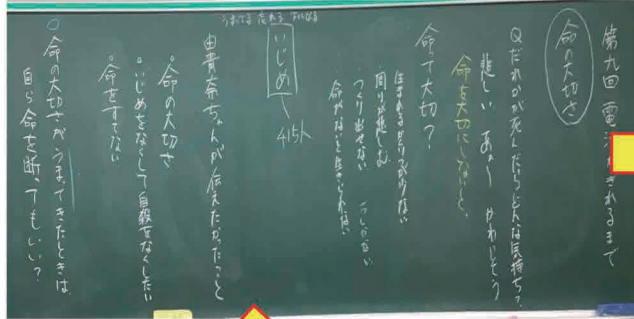 第九回 電池がきれるまで
命の大切さ
Qだれかが死んだらどんな気持ち?
悲しい あぁ〜 かわいそう
命を大切にしないと、
命って大切?
生まれる
周りが悲しむ
つくり出せない 一つしかない
命がないと生きられない
いじめ
415人
由貴奈ちゃんが伝えたかったこと
・命の大切さ
・いじめをなくして自殺をなくしたい
・命をすてない
○命の大切さがうまってきたときは
自ら命を断ってもいい?